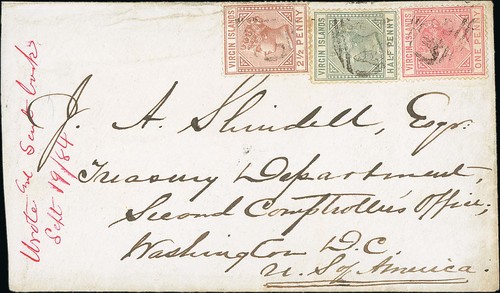 VIRGIN ISLANDS
2½ PENNY
VIRGIN ISLANDS
HALF PENNY
VIRGIN ISLANDS
ONE PENNY
J. A. Shindell, Esqr.
Treasury Department,
Second Comptroller's Office;
Washington D.C
U. S of America.
Wrote
Sept 19/84